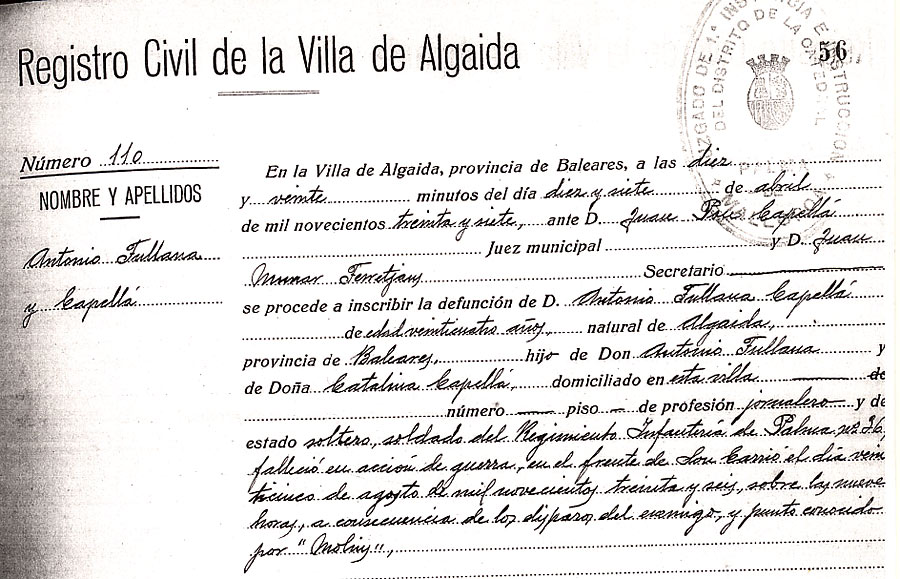 Registro Civil de la Villa de Algaida
JUZGADO DE 1ª INSTANCIA E INSTRUCCION
DEL DISTRITO DE LA
PALMA DE
56
Número 110
NOMBRE Y APELLIDOS
Antonio Fullana
y Capellá
En la Villa de Algaida, provincia de Baleares, a las diez
y veinte minutos del día diez y siete de abril
de mil novecientos treinta y siete, ante D. Juan Pou Capellá
Juez municipal y D. Juan
Munar Ferretjans Secretario
se procede a inscribir la defunción de D. Antonio Fullana Capellá
de edad veinticuatro años, natural de Algaida,
provincia de Baleares, hijo de Don Antonio Fullana y
de Doña Catalina Capellá, domiciliado en esta villa de
número piso de profesión jornalero y de
estado soltero, soldado del Regimiento Infantería de Palma nº 36,
falleció en acción de guerra, en el frente de Son Carrió el día vein
ticinco de agosto de mil novecientos treinta y seis, sobre las nueve
horas, a consecuencia de los disparos del enemigo, y punto conocido
por "Molins",